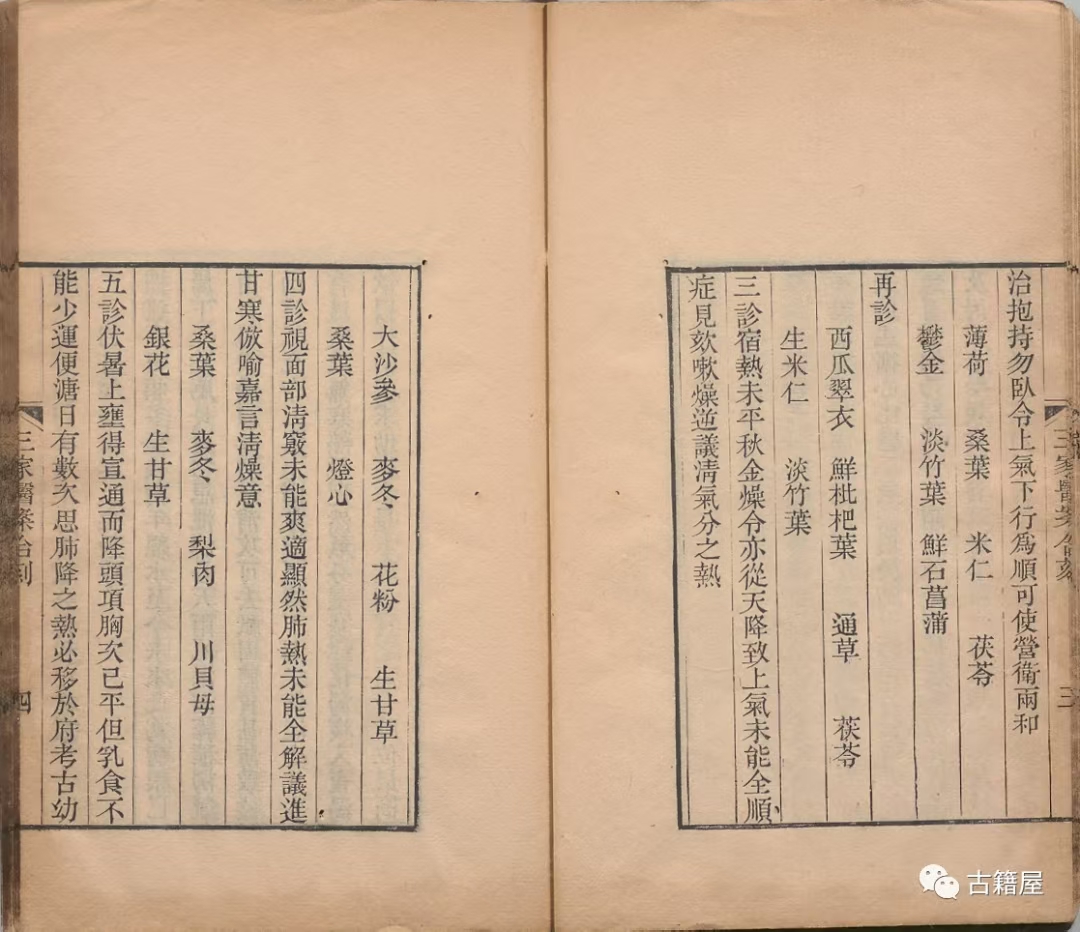 治抱持勿臥令上氣下行為順可使營衞兩和
薄荷 桑葉 米仁 茯苓
鬱金 淡竹葉 鮮石菖蒲
再診
西瓜翠衣 鮮枇杷葉 通草 茯苓
生米仁 淡竹葉
三診宿熱未平秋金燥令亦從天降致上氣未能全順
症見欬嗽燥逆議清氣分之熱
三家醫案合刻 三
大沙參 麥冬 花粉 生甘草
桑葉 燈心
四診視面部清竅未能爽適顯然肺熱未能全解議進
甘寒倣喻嘉言清燥意
桑葉 麥冬 梨肉 川貝母
銀花 生甘草
五診伏暑上壅得宣通而降頭項胸次已平但乳食不
能少運便溏日有數次思肺降之熱必移於府考古幼
三家醫案合刻 四
古籍屋